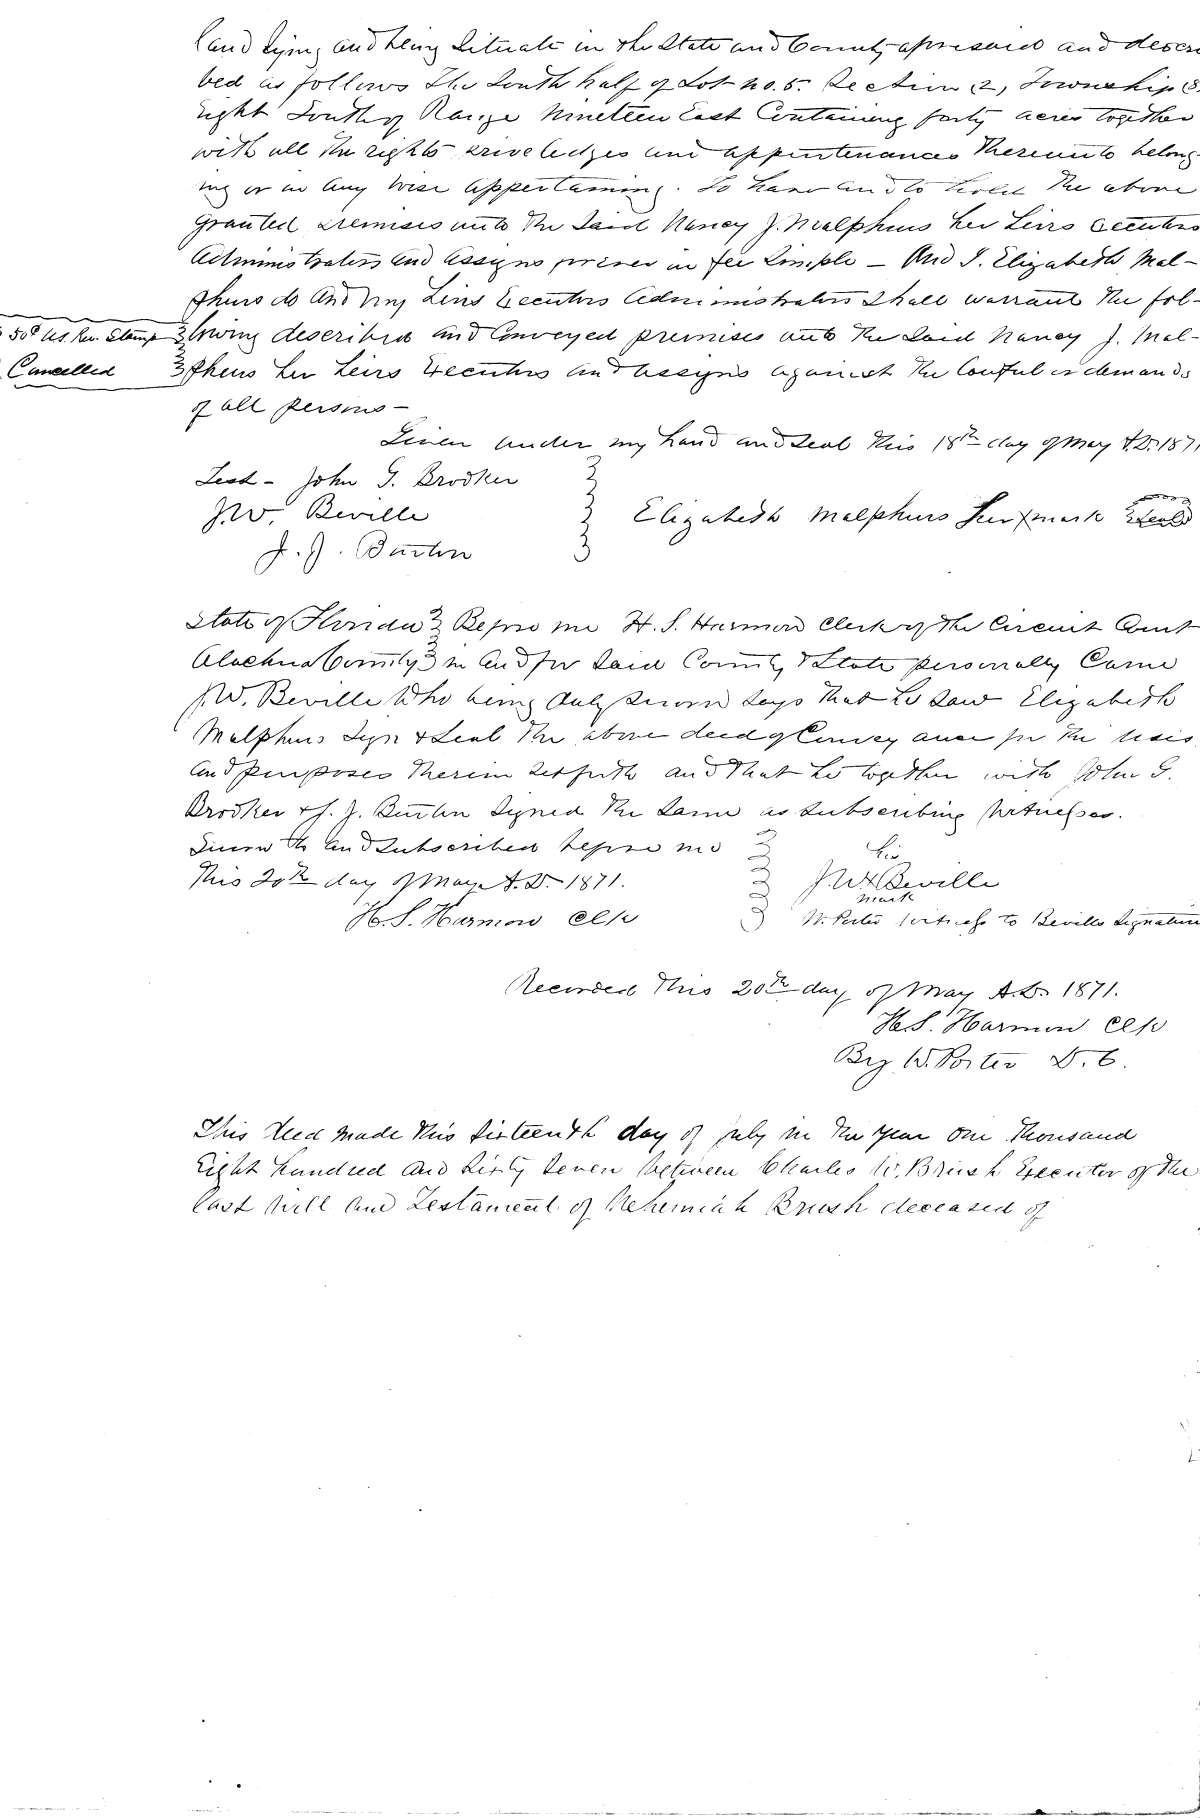 land lying and being Situate in the State and County aforesaid and descri
bed as follows The South half of Lot no. 5. Section (2, Township (8.
Eight South of Range Nineteen East Containing forty acres together
with all the rights priveledges and appertenances Thereunto belong-
ing or in any wise appertaining. To have and to hold The above
Granted premises unto The Said Nancy J. Malphurs her heirs executors
Administrators and assigns forever in fee Simple – And I. Elizabeth Mal-
phurs do And my heirs Executors Administrators Shall warrant The fol-
50¢ U.S. Rev. Stamp lowing described and Conveyed premises unto The Said Nancy J. Mal-
Cancelled phurs her heirs Executors and assigns against The lawful demands
of all persons –
Given under my hand and Seal This 18th day of May A.D. 1871
Test – John G. Brooker
J.W. Beville
J. J. Burton
Elizabeth Malphurs her X mark Seal
State of Florida Before me H. S. Harmon Clerk of The Circuit Court
Alachua County in and for Said County & State personally Came
J.W. Beville Who being duly Sworn Says That he Saw Elizabeth
Malphurs Sign & Seal The above deed of Convey ance for The uses
and purposes Therein Set forth and That he together with John G.
Brooker & J. J. Burton Signed The Same as Subscribing Witnesses.
Sworn to and Subscribed before me
This 20th day of May A.D. 1871.
H. S. Harmon Clk
his
J.W. X Beville
mark
W. Porter Witness to Bevilles Signature
Recorded This 20th day of May A.D. 1871.
H.S. Harmon Clk
By W. Porter D. C.
This deed made this Sixteenth day of July in The Year one Thousand
Eight hundred and Sixty Seven between Charles W. Brush Executor of The
last Will and Testament of Nehemiah Brush deceased of